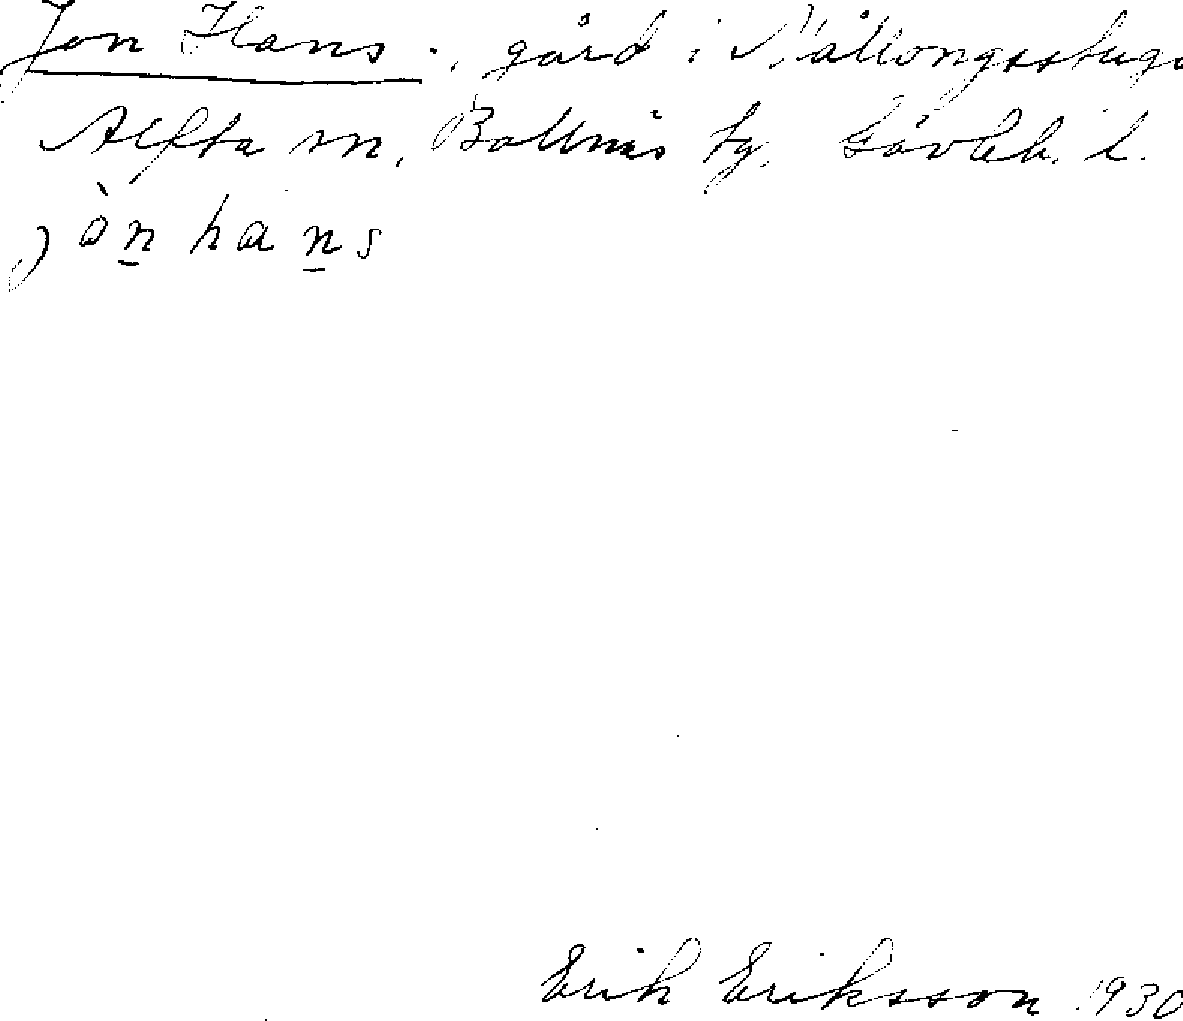 Jon Hans ., gård i Mållongsstuga
Alfta sn, Bollnäs tg. Gävleb. l.
jòn̲ han̲s
Erik Eriksson 1930